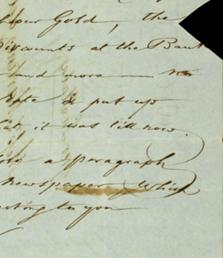 your Gold, the
discounts at the Bank
and more — No
Note & put up
it was till now.
a paragraph
Newspaper, which
to you